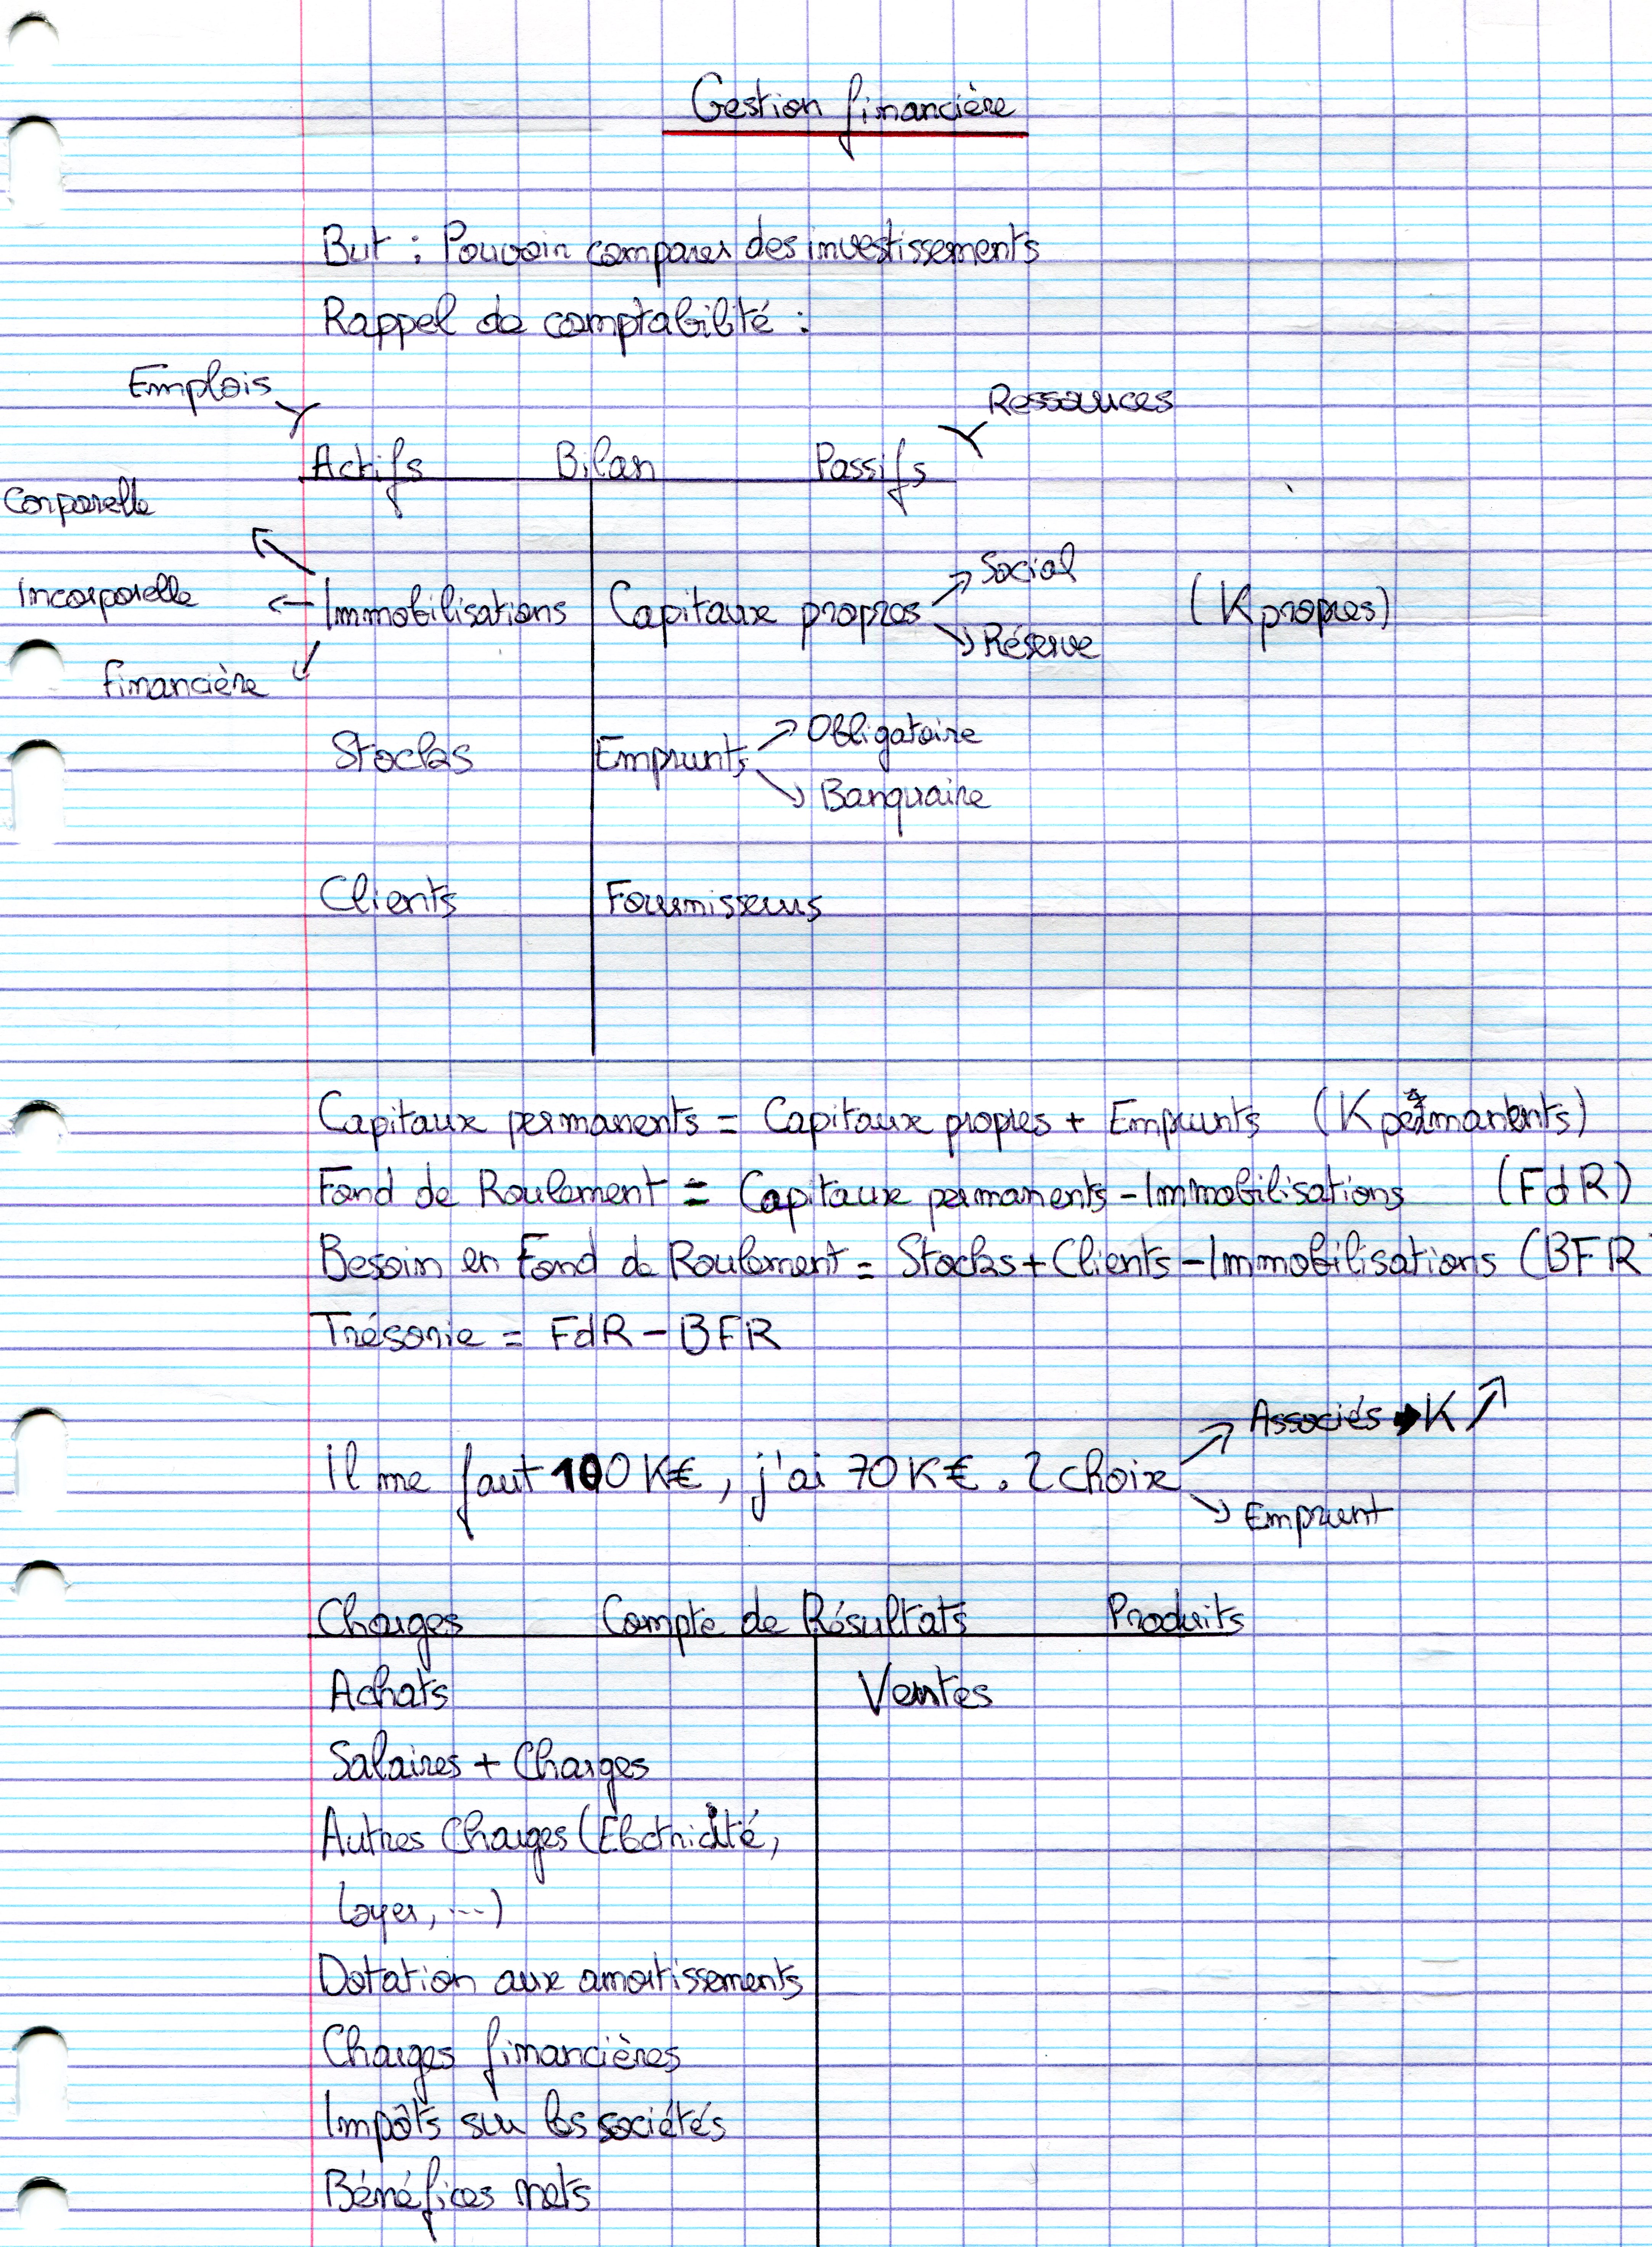 Gestion financière
But : Pouvoir comparer des investissements
Rappel de comptabilité :
Emplois
Ressources
Actifs Bilan Passifs
Corporelle
Incorporelle
financière
Immobilisations
Capitaux propres
Social
Réserve
(K propres)
Stocks
Emprunts
Obligatoire
Banquaire
Clients
Fournisseurs
Capitaux permanents = Capitaux propres + Emprunts (K permanents)
Fond de Roulement = Capitaux permanents - Immobilisations (FdR)
Besoin en Fond de Roulement = Stocks + Clients - Immobilisations (BFR
Trésorie = FdR - BFR
Il me faut 100 K€, j'ai 70 K€. 2 choix
Associés → K ↗
Emprunt
Charges Compte de Résultats Produits
Achats Ventes
Salaires + Charges
Autres Charges (Electricité,
loyer, ...)
Dotation aux amortissements
Charges financières
Impôts sur les sociétés
Bénéfices nets